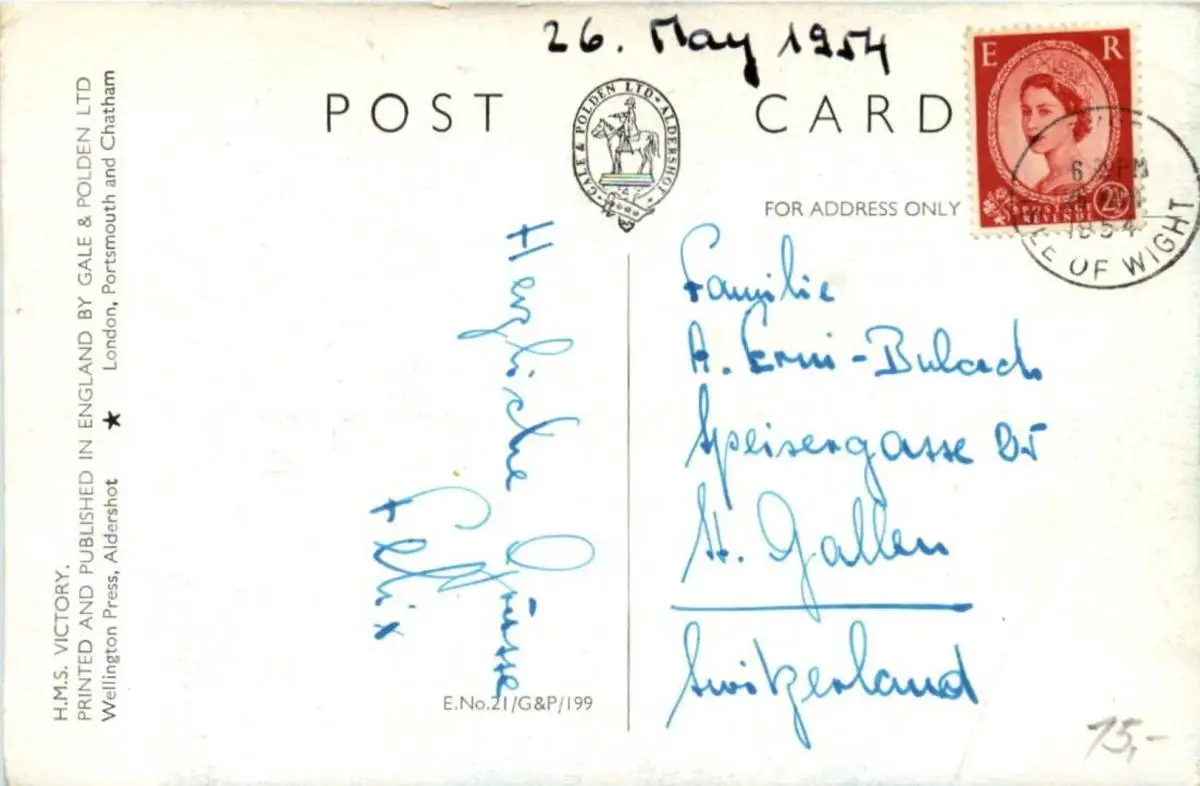 26. May 1954
POST CARD
GALE & POLDEN LTD • ALDERSHOT •
E R
2½
REVENUE
6 PM
1954
ISLE OF WIGHT
FOR ADDRESS ONLY
Familie
A. Erni-Bulach
Speisergasse
St. Gallen
Switzerland
Herzliche Grüsse
Felix
H.M.S. VICTORY.
PRINTED AND PUBLISHED IN ENGLAND BY GALE & POLDEN LTD
Wellington Press, Aldershot ★ London, Portsmouth and Chatham
E.No.21/G&P/199
15,-